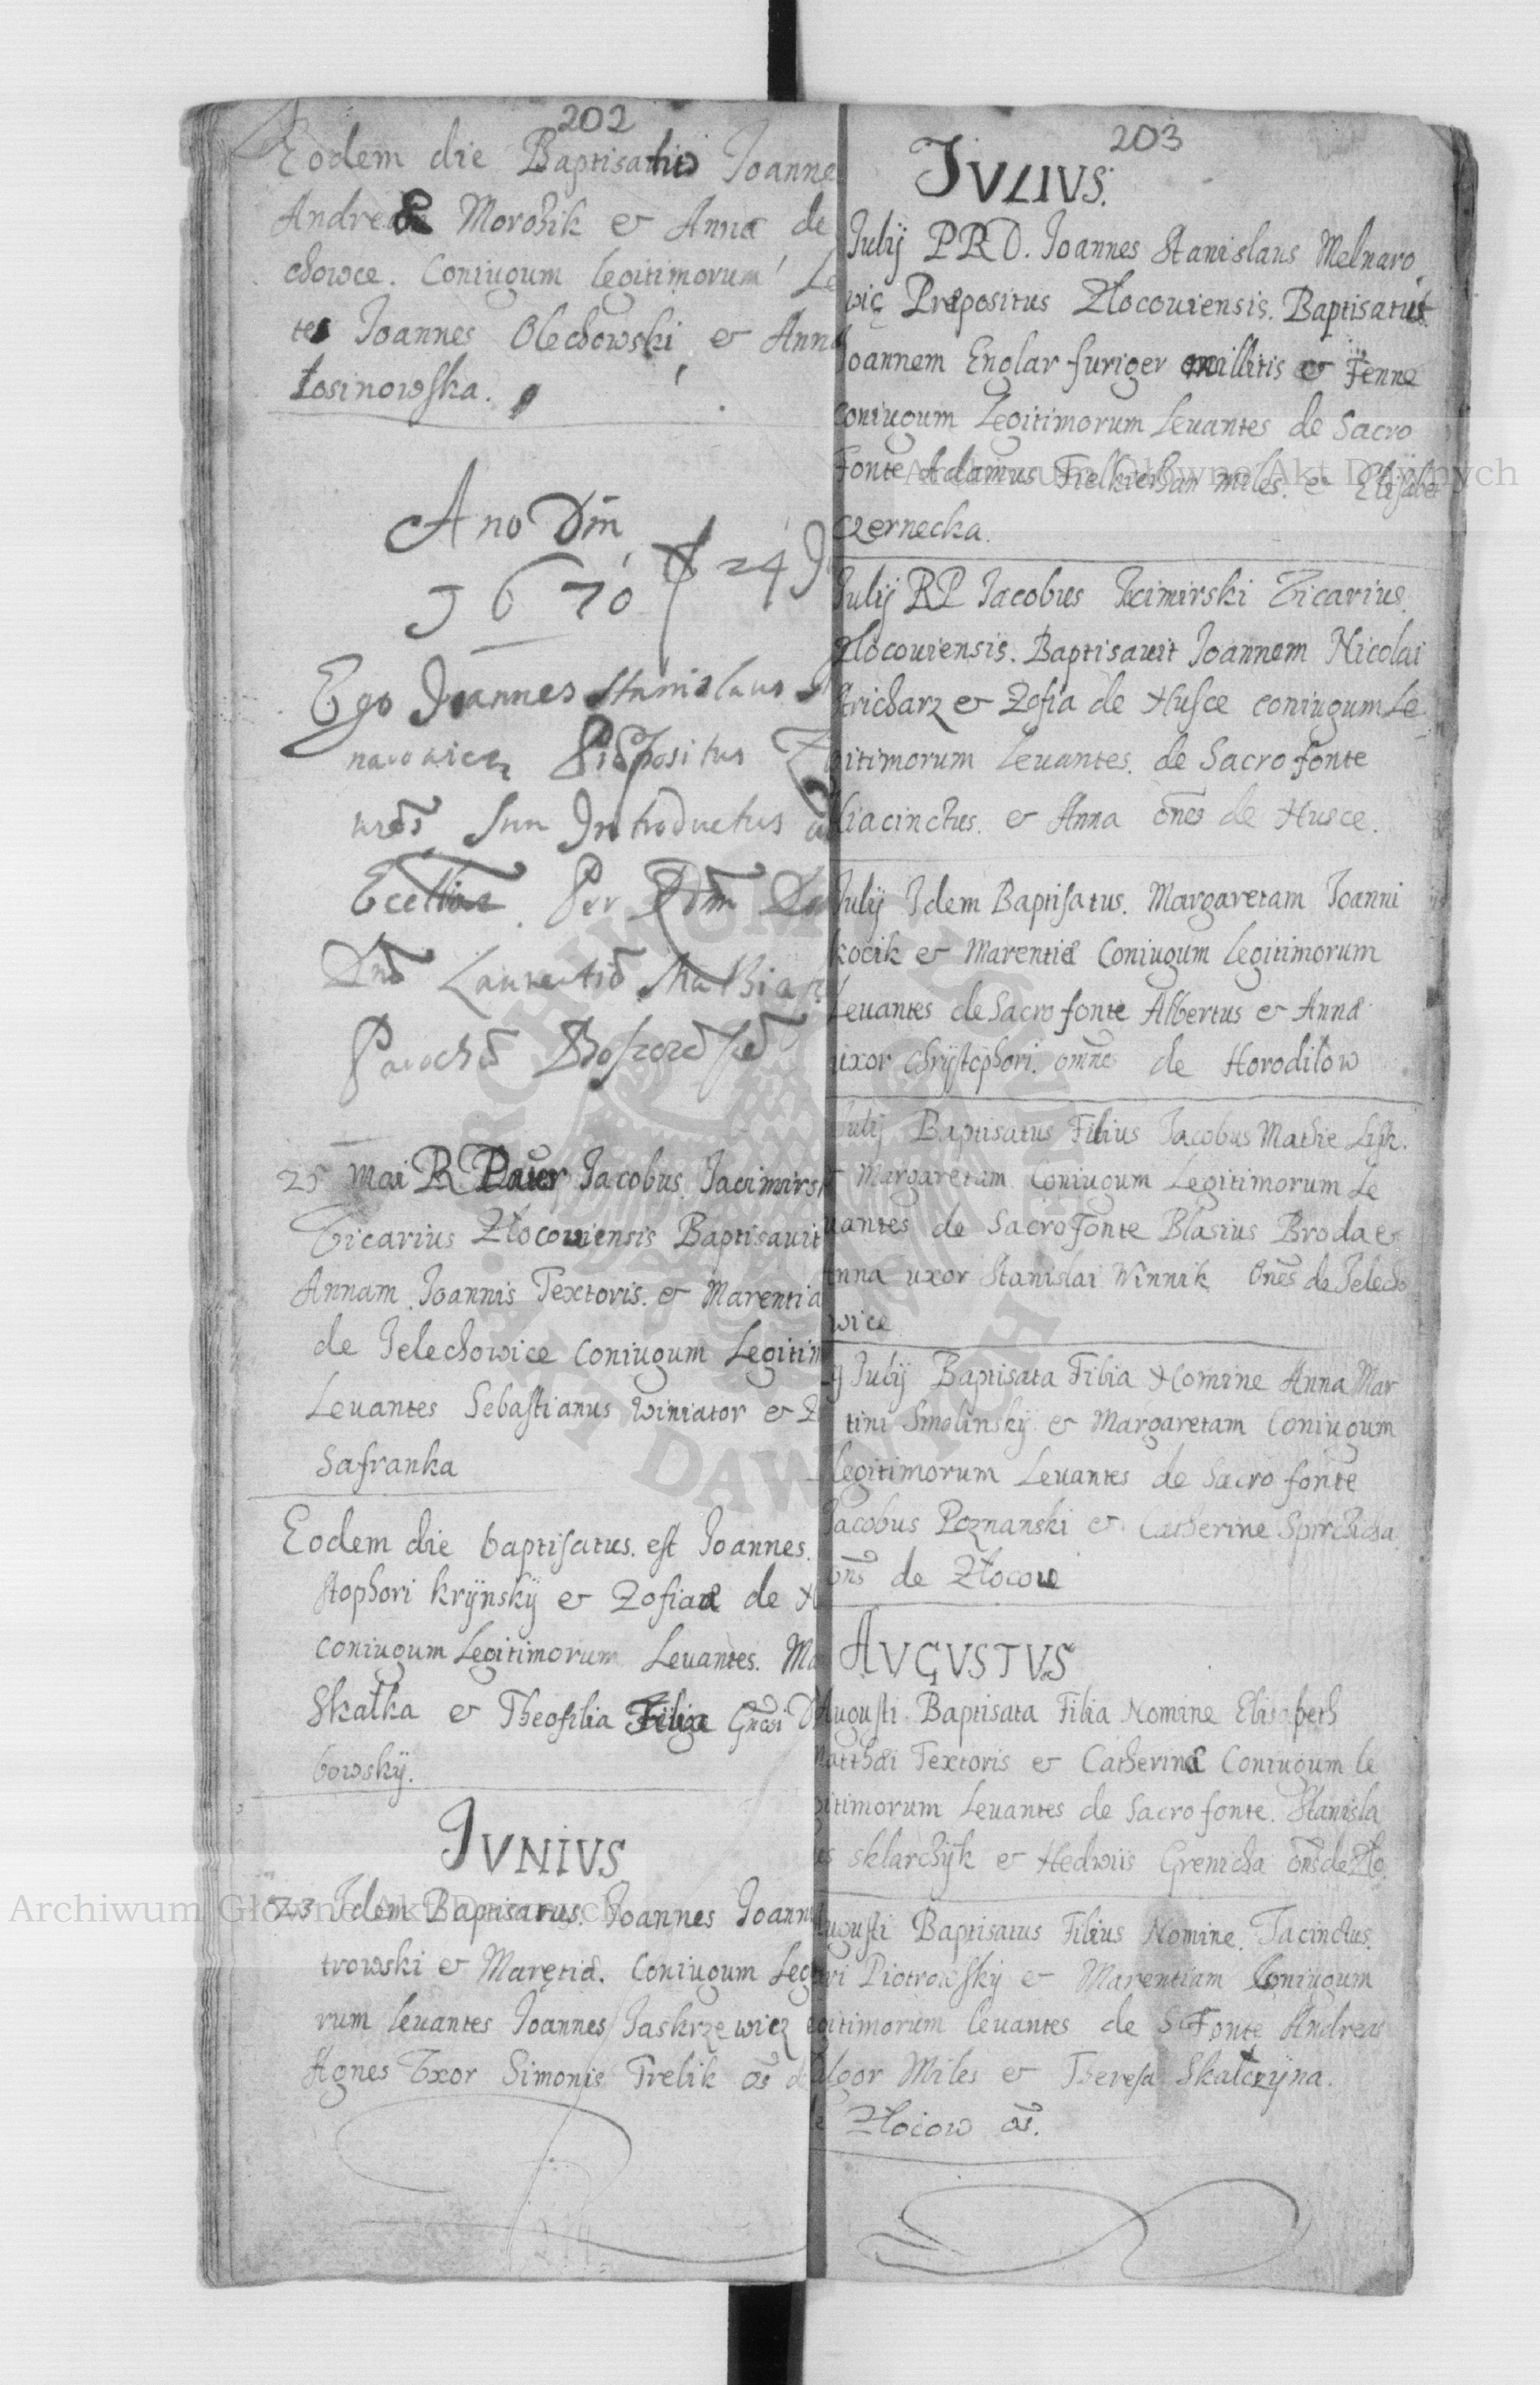 202
Eodem die Baptisatus Joanne
Andreæ Morochik et Anna de
chowce. Coniugum legitimorum Le
tes Joannes Olechowski et Anna
Łosinowska.
Ano Dni
1670 24
Ego Joannes Stanislaus
narowicz Præpositus
Sum Introductus
Per
25 Mai R Pater Jacobus Jacimirsk
Vicarius Złocouiensis Baptisauit
Annam Joannis Textoris. et Marentia
de Jelechowice Coniugum Legitim
Leuantes Sebastianus Winiator et Z
Safranka
Eodem die baptisatus. est Joannes.
stophori Krÿnskÿ et Zofiaæ de H
coniugum Legitimorum Leuantes. Ma
Skałka et Theofilia Filia
bowskÿ.
JVNIVS
23 Idem Baptisatus. Joannes Joann
trowski et Maretiæ. Coniugum Leg
rum leuantes Joannes Jaskrzewicz
Agnes Vxor Simonis Trelik os̄ d
203
JVLIVS.
Julij PRD. Joannes Stanislaus Melnaro
wic Præpositus Złocouiensis. Baptisauit
Joannem Englar furiger millitis et Fenne
Coniugum Legitimorum Leuantes de Sacro
Fonte Adamus miles. et Elisabet
Czernecka.
Julij RP Jacobus Jacimirski Vicarius.
Złocouiensis. Baptisauit Joannem Nicolai
Stricharz et Zofia de Husce coniugum Le
gitimorum Leuantes. de Sacro fonte
Hiacinctus. et Anna on̄es de Husce.
Julij Idem Baptisatus. Margaretam Joanni
kocik et Marentiæ Coniugum Legitimorum
Leuantes de Sacro fonte Albertus et Anna
uxor Chrijstophori. omnes de Horodiłow
Julij Baptisatus Filius Jacobus Mathie Lisk.
et Margaretam Coniugum Legitimorum Le
uantes de Sacro Fonte Blasius Broda et
Anna uxor Stanislai Winnik On̄es de Jelecho
wice
Julij Baptisata Filia Nomine Anna Mar
tini Smolinskij et Margaretam Coniugum
Legitimorum Leuantes de Sacro fonte
Jacobus Poznanski et Catherine
on̄s de Złocow
AVGVSTVS
Augusti Baptisata Filia Nomine Elisabeth
Matthæi Textoris et Catherinæ Coniugum le
gitimorum Leuantes de Sacro fonte. Stanisla
us Sklarchÿk et Hedwiis Grenicha on̄s de Zło
Augusti Baptisatus Filius Nomine. Jacinctus.
ri Piotrowskÿ et Marentiam Coniugum
egitimorum leuantes de S Fonte Andreas
Miles et Theresa Skałczÿna.
de Złocow os̄.
Archiwum Główne Akt Dawnych
Archiwum Główne Akt Dawnych
ARCHIWUM GŁÓWNE AKT DAWNYCH